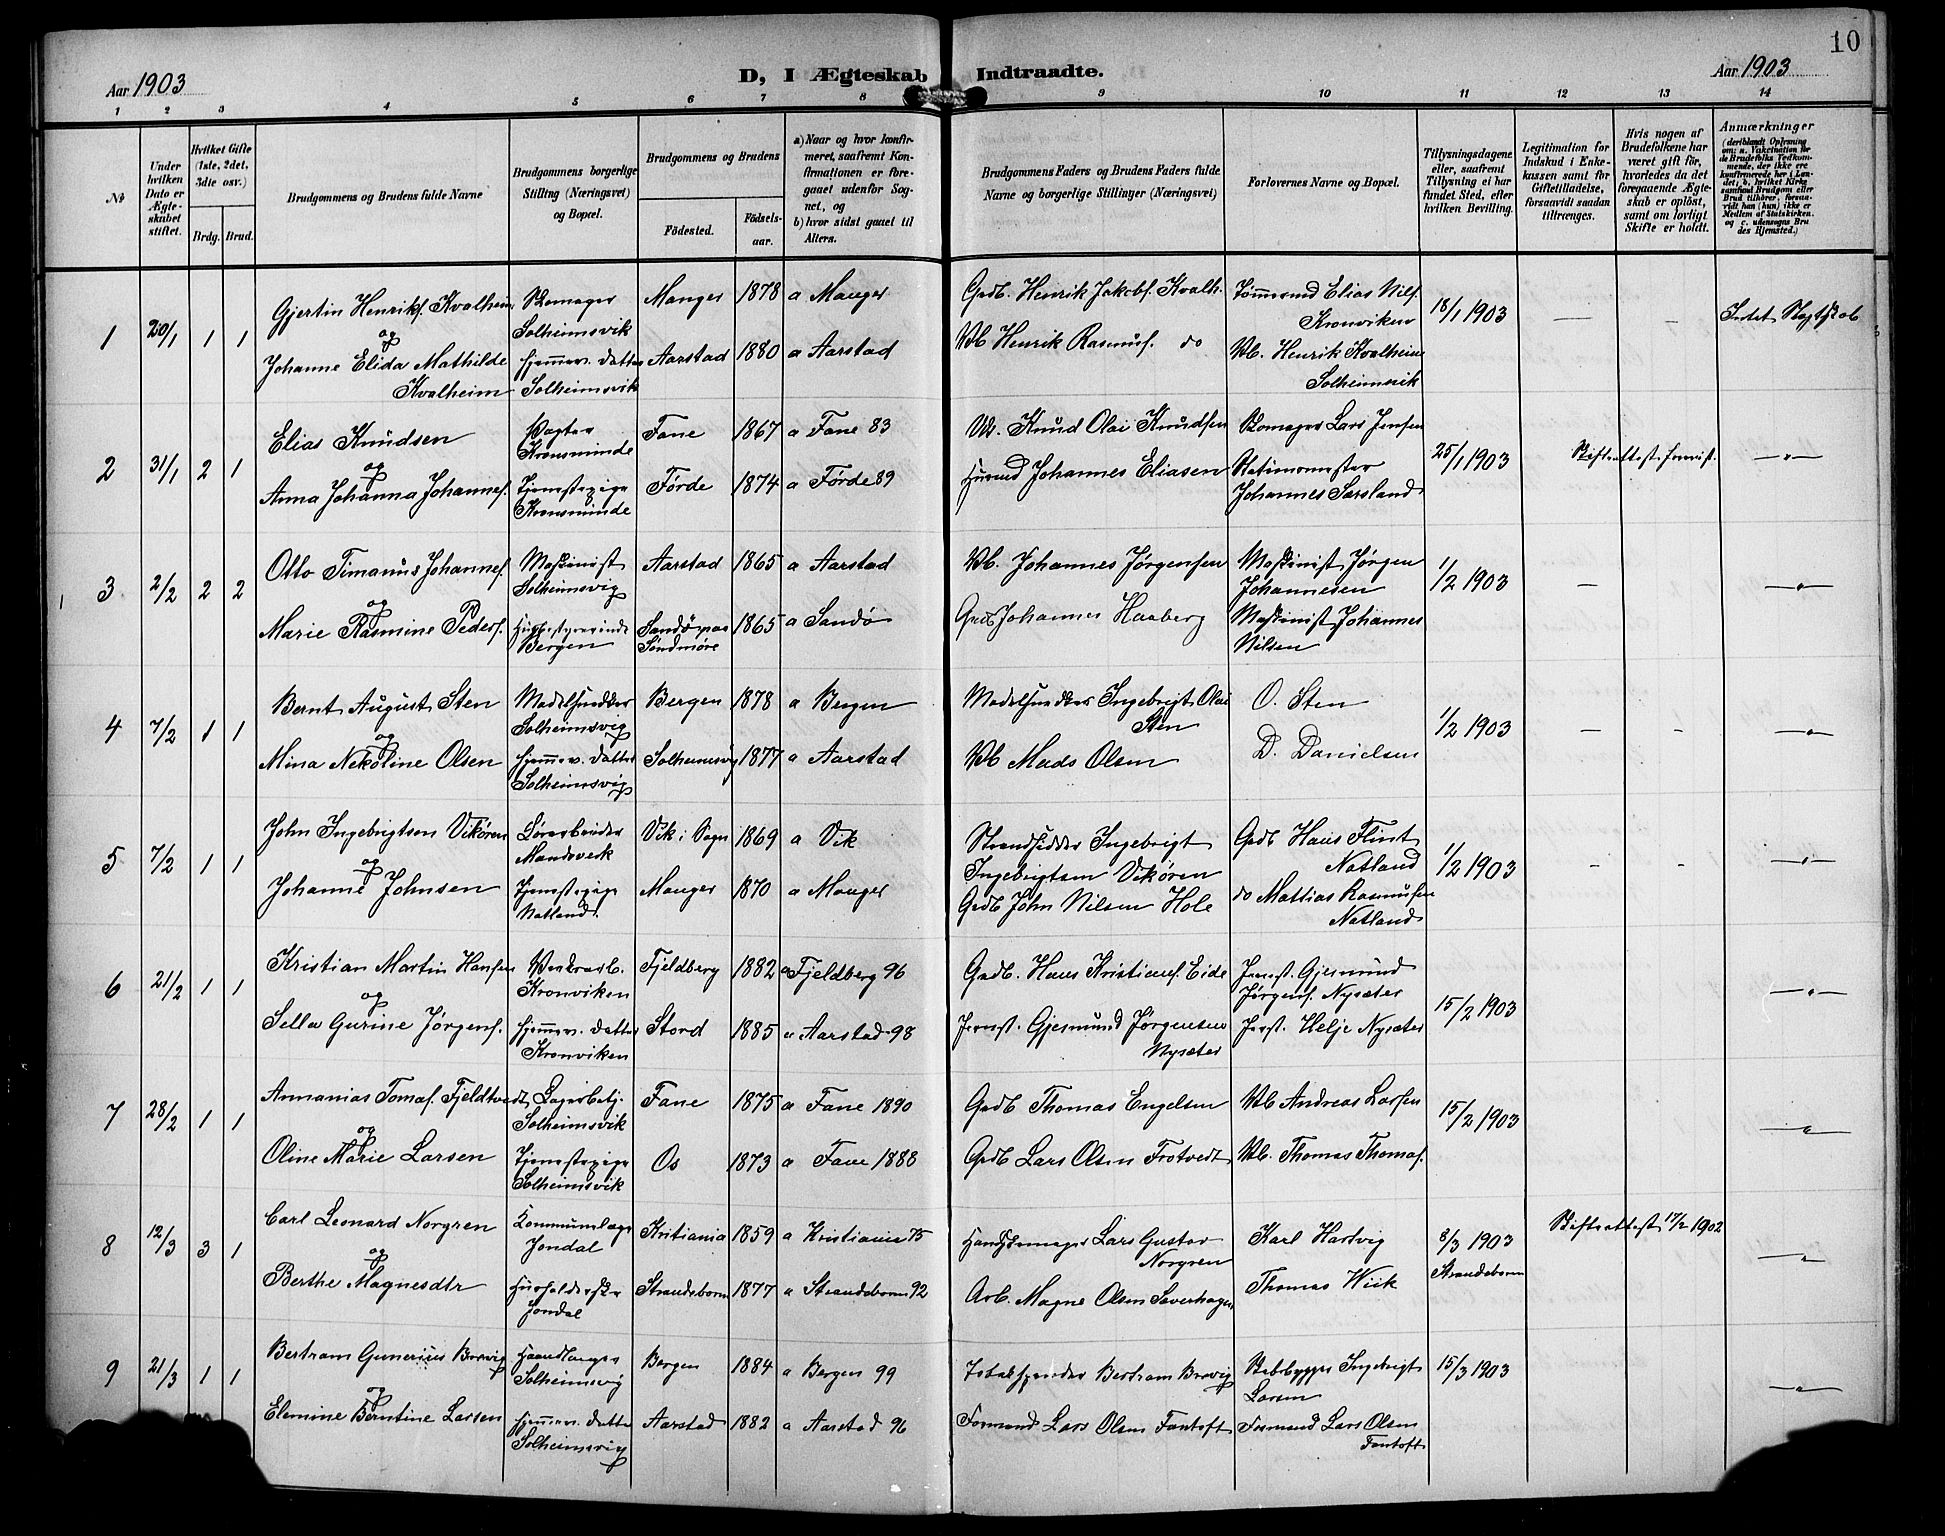 10
Aar 1903
D, I Ægteskab Indtraadte.
Aar 1903
1 2 3 4 5 6 7 8 9 10 11 12 13 14
No
Under hvilken Dato er Ægteskabet stiftet.
Hvilket Gifte (1ste, 2det, 3die osv.)
Brdg. Brud.
Brudgommens og Brudens fulde Navne
Brudgommens borgerlige Stilling (Næringsvei) og Bopæl.
Brudgommens og Brudens
Födested.
Födselsaar.
a) Naar og hvor konfirmeret, saafremt Konfirmationen er foregaaet udenfor Sognet, og
b) hvor sidst gaaet til Alters.
Brudgommens Faders og Brudens Faders fulde Navne og borgerlige Stillinger (Næringsvei)
Forlovernes Navne og Bopæl.
Tillysningsdagene eller, saafremt Tillysning ei har fundet Sted, efter hvilken Bevilling.
Legitimation for Indskud i Enkekassen samt for Giftetilladelse, forsaavidt saadan tiltrænges.
Hvis nogen af Brudefolkene har været gift för, hvorledes da det foregaaende Ægteskab er oplöst, samt om lovligt Skifte er holdt.
Anmærkninger
1 20/1 1 1
Gjertin Henriks. Kvalheim
og
Johanne Elida Mathilde
Kvalheim
Skomager
Solheimsvik
hjemmev. datter
Solheimsvik
Manger 1878 a Manger
Aarstad 1880 a Aarstad
Grdb. Henrik Jakobs. Kvalh.
Vb Henrik Rasmus. do
Tømmermd Elias Nils.
Kronviken
Vb. Henrik Kvalheim
Solheimsvik
18/1 1903
— —
2 31/1 2 1
Elias Knudsen
og
Anna Johanna Johannes.
Vogter
Kronsminde
Tjenestepige
Kronsminde
Fane 1867 a Fane 83
Førde 1874 a Førde 89
Knud Olai Knudsen
Husmd Johannes Eliasen
Skomager Lars Jensen
Stationsmester
Johannes Sarsland
25/1 1903
Skifteattest
— " —
3 2/2 2 2
Otto Timanus Johannes.
og
Marie Rasmine Peders.
Maskinist
Solheimsvig
Husbestyrerinde
Bergen
Aarstad 1865 a Aarstad
Sandö paa
Söndmöre 1865 a Sandö
Vb. Johannes Jørgensen
Grdb Johannes Haaberg
Maskinist Jørgen
Johannesen
Maskinist Johannes
Nilsen
1/2 1903
—
— " —
4 7/2 1 1
Bernt August Sten
og
Mina Nekoline Olsen
Modelsnedker
Solheimsvig
hjemmev. datter
Solheimsvig
Bergen 1878 a Bergen
Solheimsvig 1877 a Aarstad
Modelsnedker Ingebrigt Olai
Sten
Vb Mads Olsen
O. Sten
D. Danielsen
1/2 1903
— —
— " —
5 7/2 1 1
John Ingebrigtsen Vikören
og
Johanne Johnsen
Mandsverk
Tjenestepige
Natland.
Vik i Sogn 1869 a Vik
Manger 1870 a Manger
Strandsidder Ingebrigt
Ingebrigtsen Vikören
Grdb John Nilsen Hole
Grdb Hans Flint
Natland
do Mattias Rasmusen
Natland
1/2 1903
— —
— " —
6 21/2 1 1
Kristian Martin Hansen
og
Sella Gurine Jørgens.
Verksarb.
Kronviken
hjemmev. datter
Kronviken
Fjeldberg 1882 a Fjeldberg 96
Stord 1885 a Aarstad 98
Grdb. Hans Kristians. Eide
Jernst. Gjesmund Jørgensen
Nysæter
Jernst. Gjesmund
Jørgens. Nysæter
Jerst. Helje Nysæter
15/2 1903
— " —
7 28/2 1 1
Annanias Tomas. Fjeldtvedt
og
Oline Marie Larsen
Lagerbetj.
Solheimsvik
Tjenestepige
Solheimsvik
Fane 1875 a Fane 1890
Os 1873 a Fane 1888
Grdb Thomas Engelsen
Grdb Lars Olsen Frotvedt
Vb Andreas Larsen
Vb. Thomas Thomas.
15/2 1903
— " —
8 12/3 3 1
Carl Leonard Norgren
og
Berthe Magnesdtr
Kommunelæge
Jondal
Husholderske
Jondal
Kristiania 1859 a Kristiania 75
Strandebarm 1877 a Strandebarm 92
Handskemager Lars Gustav
Norgren
Arb. Magne Olsen Saverhagen
Karl Hartvig
Thomas Wiik
8/3 1903
Strandebarm
Skifteattest 17/2 1902
— " —
9 21/3 1 1
Bertram Gunerius Brovig
og
Elemine Berntine Larsen
Haandlanger
Solheimsvig
hjemmev. datter
Solheimsvig
Bergen 1884 a Bergen 99
Aarstad 1882 a Aarstad 96
Bertram Brovig
Formand Lars Olsen Fantoft
Skibbygger Ingebrigt
Larsen
Formand Lars Olsen
Fantoft
15/3 1903
— " —